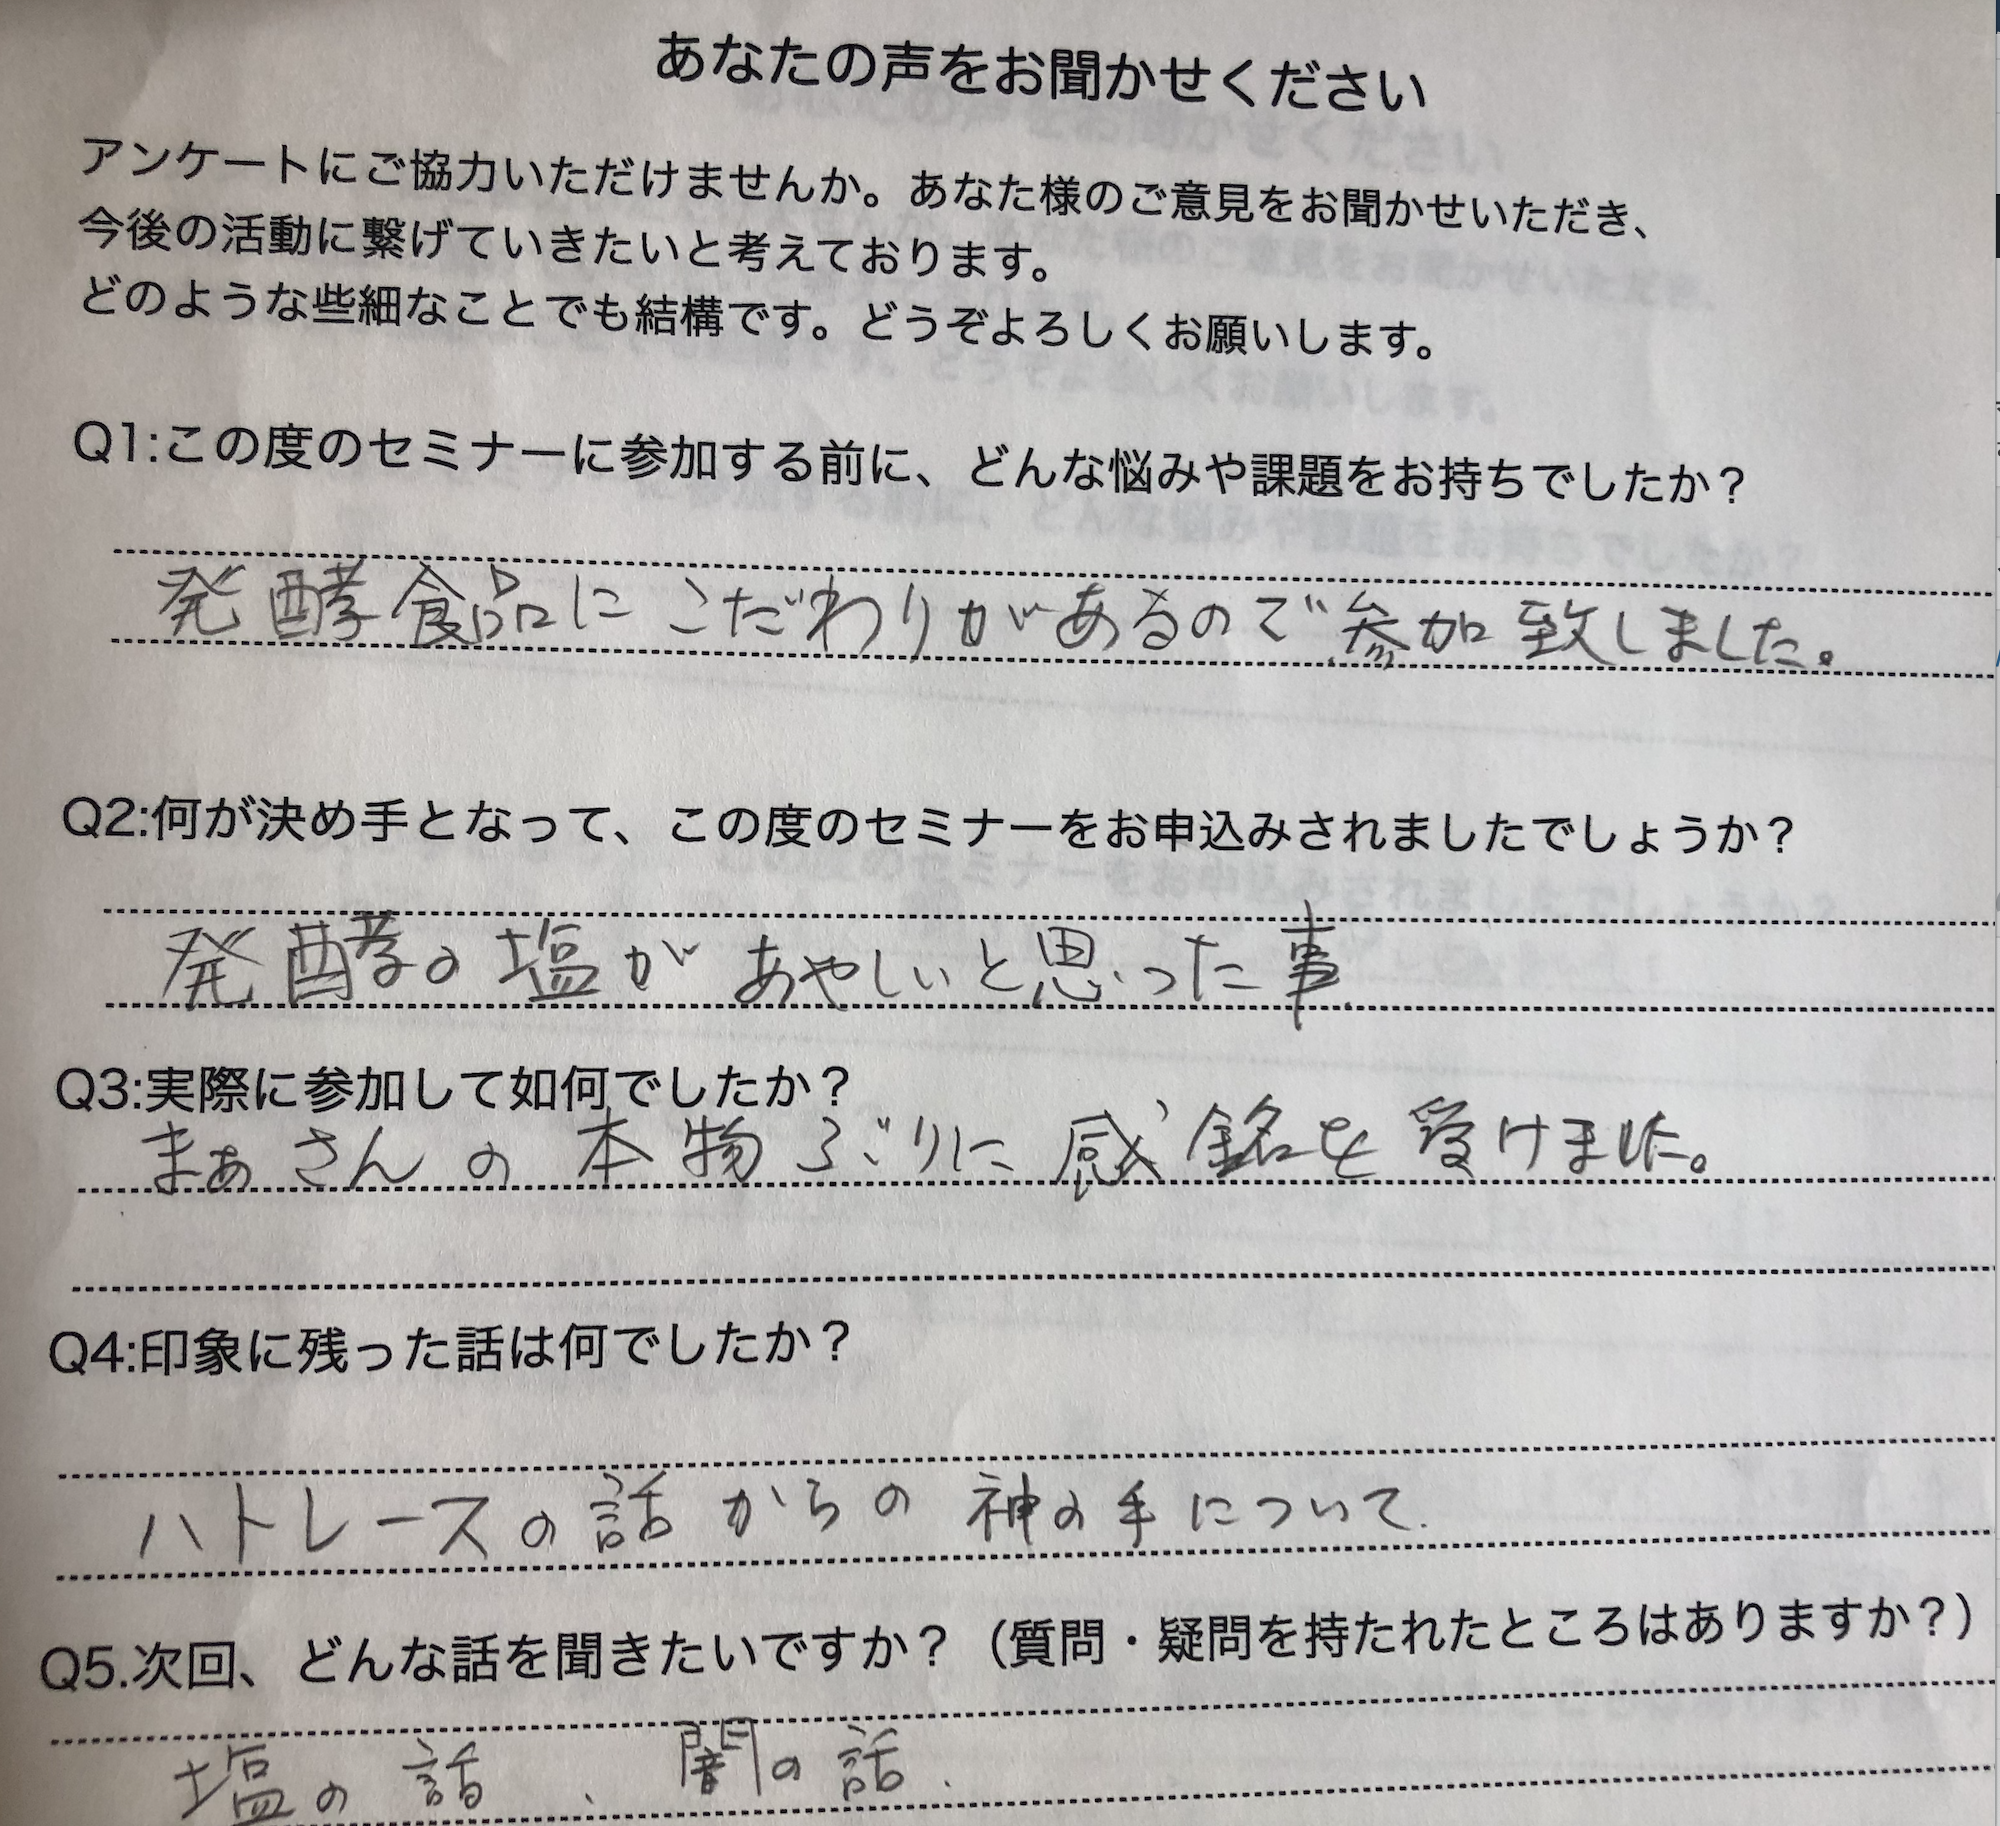 あなたの声をお聞かせください
アンケートにご協力いただけませんか。あなた様のご意見をお聞かせいただき、
今後の活動に繋げていきたいと考えております。
どのような些細なことでも結構です。どうぞよろしくお願いします。
Q1:この度のセミナーに参加する前に、どんな悩みや課題をお持ちでしたか？
発酵食品にこだわりがあるので参加致しました。
Q2:何が決め手となって、この度のセミナーをお申込みされましたでしょうか？
発酵の塩があやしいと思った事
Q3:実際に参加して如何でしたか？
まぁさんの本物ぶりに感銘を受けました。
Q4:印象に残った話は何でしたか？
ハトレースの話からの神の手について.
Q5.次回、どんな話を聞きたいですか？（質問・疑問を持たれたところはありますか？）
塩の話、闇の話.